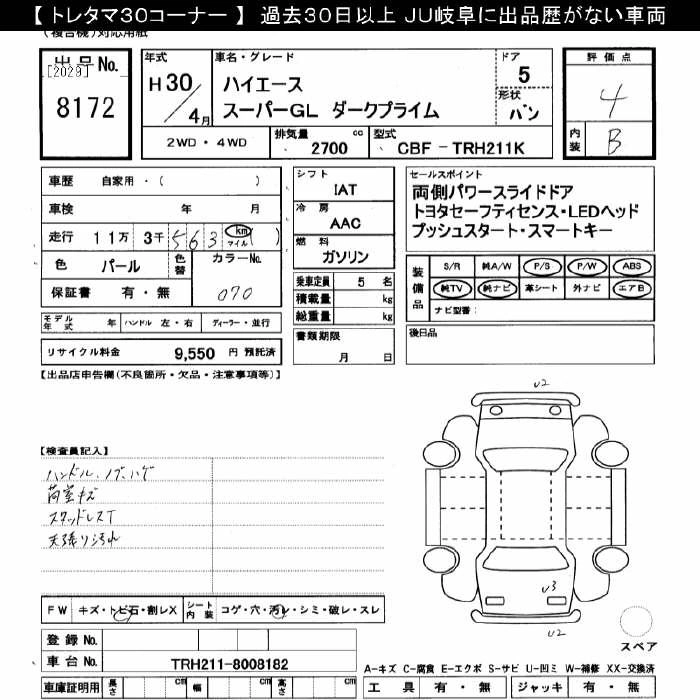 【 トレタマ30コーナー 】 過去30日以上 JU岐阜に出品歴がない車両
(複合機)対応用紙
出品No.
[2029]
8172
年式
H30/4月
車名・グレード
ハイエース
スーパーGL ダークプライム
ドア
5
形状
バン
評価点
4
内装
B
2WD・4WD
排気量
2700 cc
型式
CBF-TRH211K
車歴 自家用・( )
車検 年 月
走行 11万 3千 563 km マイル ( )
色 パール
色替
カラーNo.
070
保証書 有・無
モデル年式 年 ハンドル 左・右 ディーラー・並行
リサイクル料金 9,550 円 預託済
シフト
IAT
冷房
AAC
燃料
ガソリン
乗車定員 5 名
積載量 kg
総重量 kg
書類期限
月 日
セールスポイント
両側パワースライドドア
トヨタセーフティセンス・LEDヘッド
プッシュスタート・スマートキー
装備品
S/R 純A/W P/S P/W ABS
純TV 純ナビ 革シート 外ナビ エアB
ナビ型番:
後日品
【出品店申告欄(不良箇所・欠品・注意事項等)】
【検査員記入】
ハンドル、ノブ、ハゲ
荷室キズ
スタッドレスT
天張り汚れ
U2
U3
U2
スペア
FW キズ・トビ石・割レX
シート内装 コゲ・穴・汚レ・シミ・破レ・スレ
登録No.
車台No. TRH211-8008182
車庫証明用 長さ cm 幅 cm 高さ cm
A-キズ C-腐食 E-エクボ S-サビ U-凹ミ W-補修 XX-交換済
工具 有・無 ジャッキ 有・無